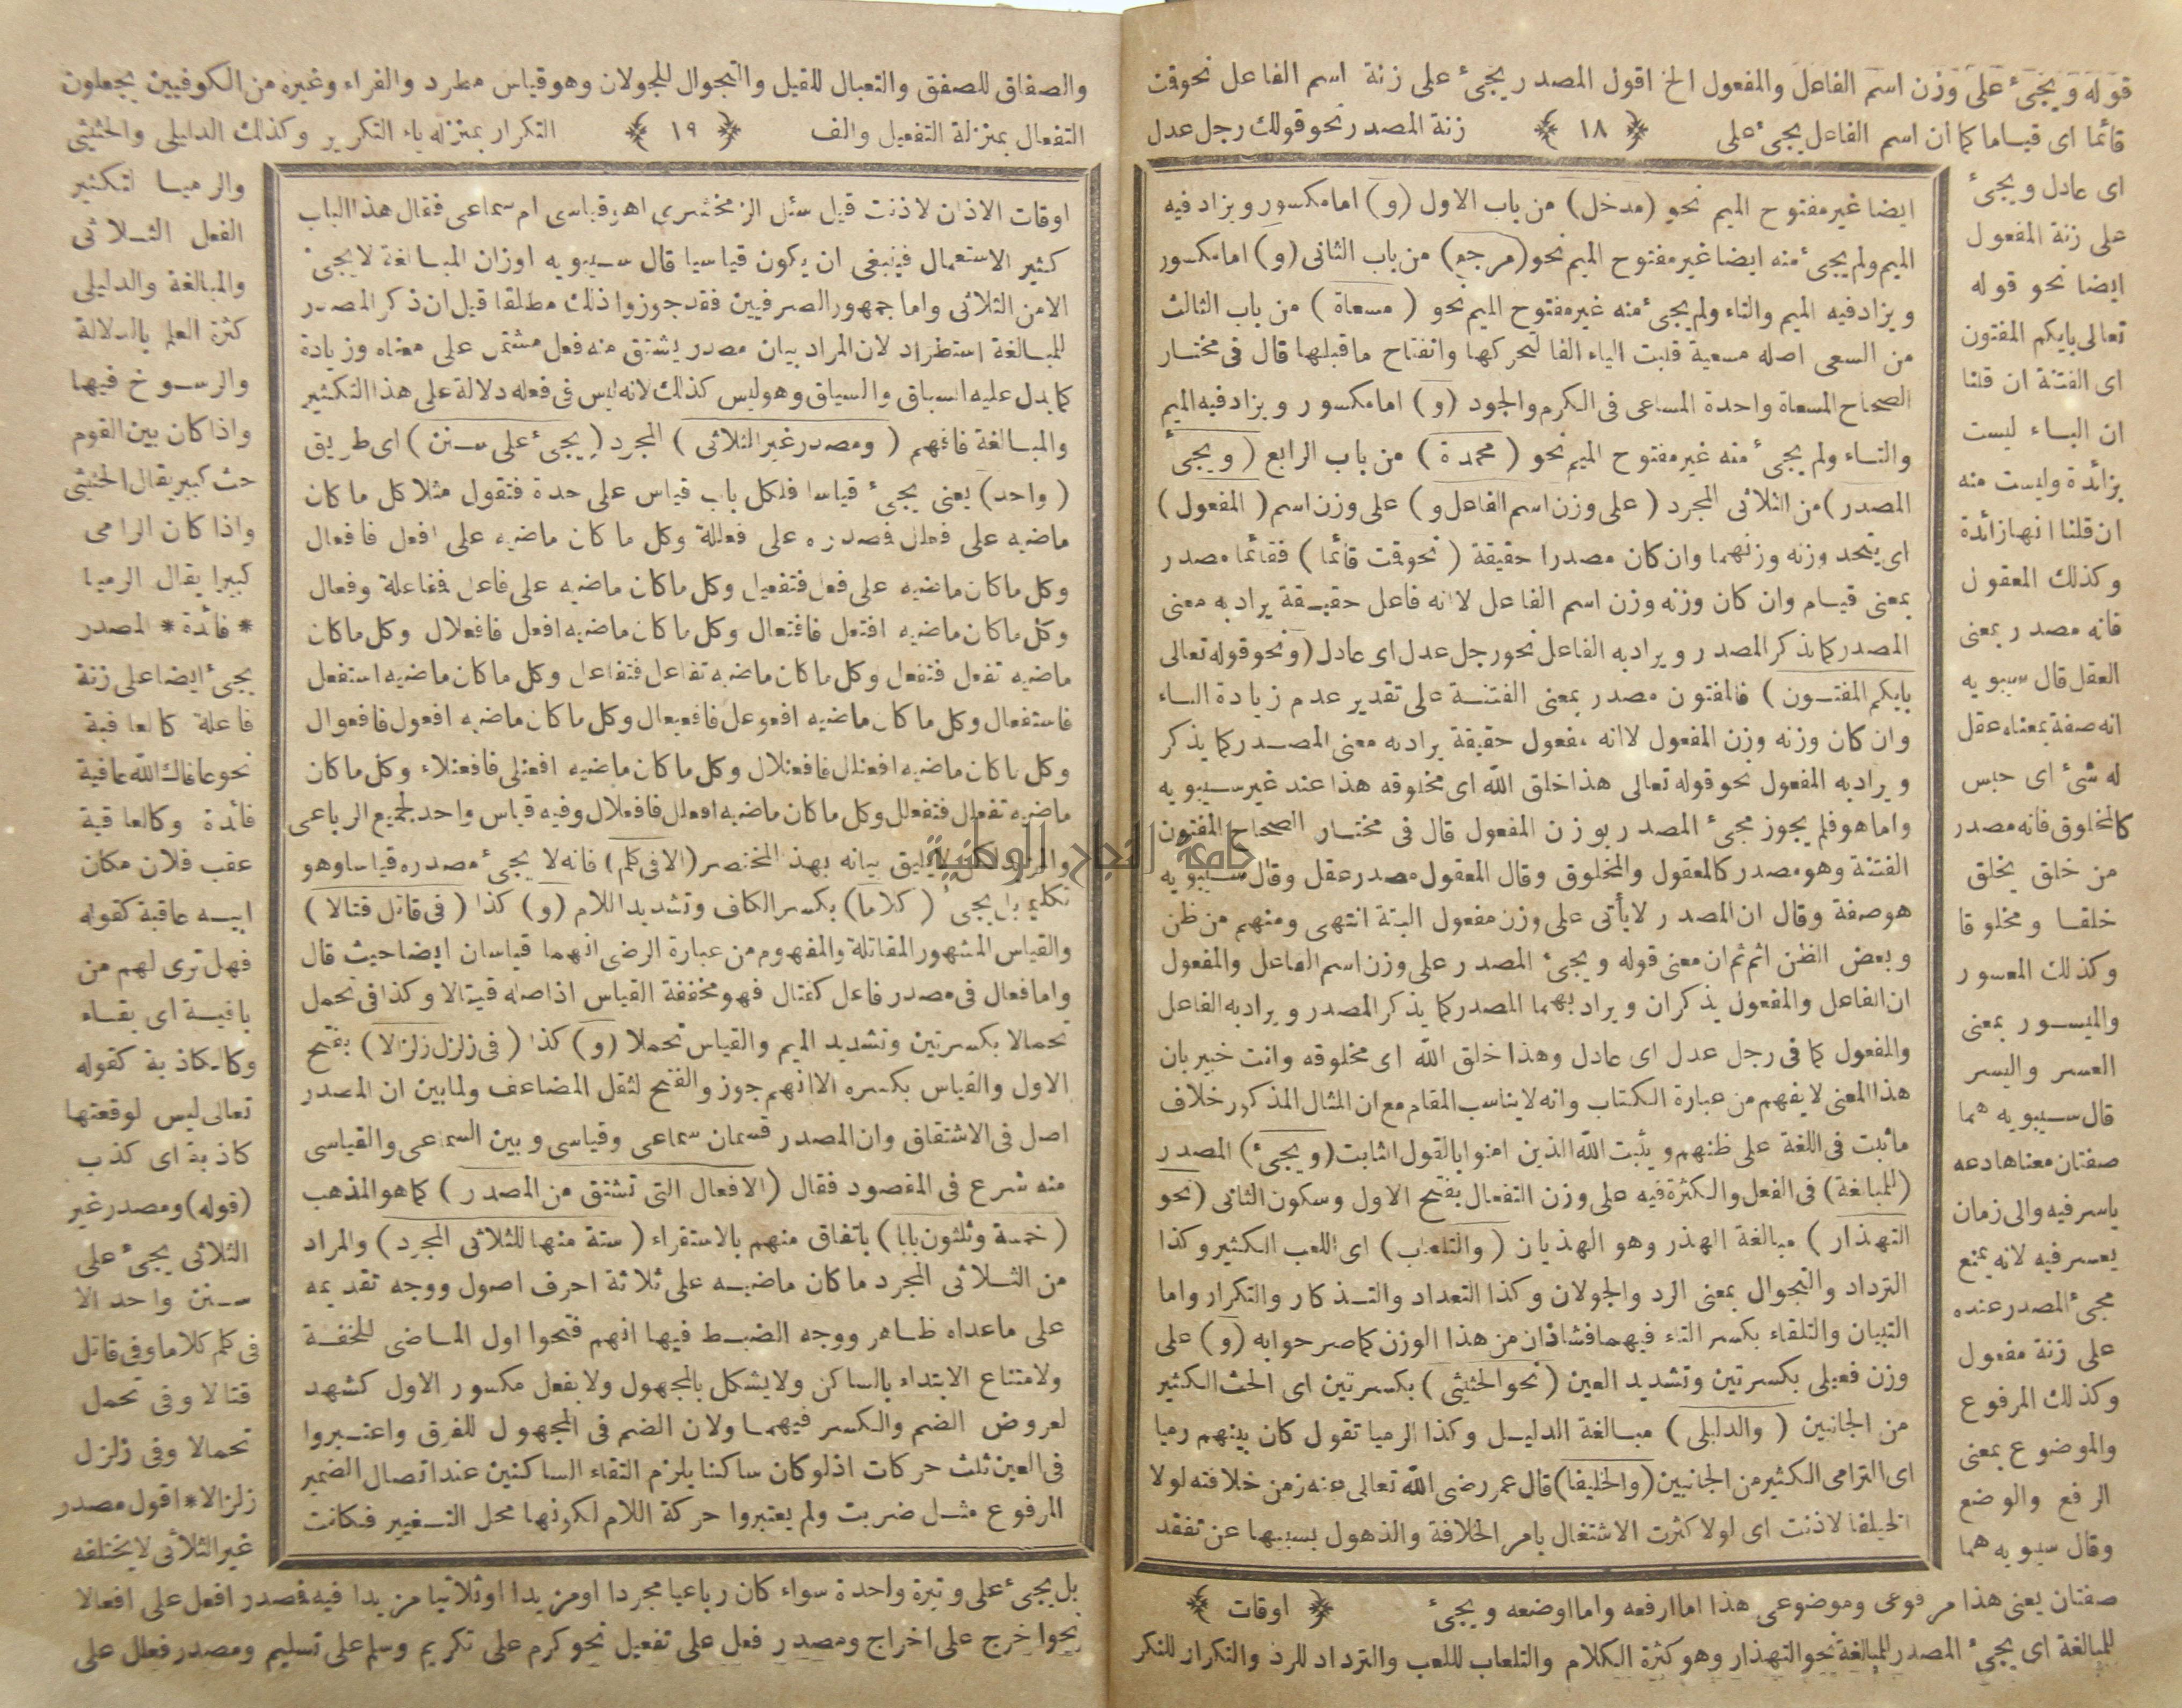 قوله ويجئ على وزن اسم الفاعل والمفعول الخ اقول المصدر يجئ على زنة اسم الفاعل نحو قمت
قائما اى قياما كما ان اسم الفاعل يجئ على ﴿ ١٨ ﴾ زنة المصدر نحو قولك رجل عدل
اى عادل ويجئ
على زنة المفعول
ايضا نحو قوله
تعالى بايكم المفتون
اى الفتنة ان قلنا
ان الباء ليست
بزائدة وليست منه
ان قلنا انها زائدة
وكذلك المعقول
فانه مصدر بمعنى
العقل قال سيبويه
انه صفة بمعناه عقل
له شئ اى حبس
كالمخلوق فانه مصدر
من خلق يخلق
خلقا ومخلوقا
وكذلك المعسور
والميسور بمعنى
العسر واليسر
قال سيبويه هما
صفتان معناها دعه
ياسر فيه والى زمان
يعسر فيه لانه يمنع
مجئ المصدر عنده
على زنة مفعول
وكذلك المرفوع
والموضوع بمعنى
الرفع والوضع
وقال سيبويه هما
صفتان يعنى هذا مرفوعى وموضوعى هذا اما ارفعه واما اوضعه ويجئ ﴿ اوقات ﴾
للمبالغة اى يجئ المصدر للمبالغة نحو التهذار وهو كثرة الكلام والتلعاب للعب والترداد للرد والتكرار للتكر
ايضا غير مفتوح الميم نحو (مدخل) من باب الاول (و) اما مكسور ويزاد فيه
الميم ولم يجئ منه ايضا غير مفتوح الميم نحو (مرجع) من باب الثانى (و) اما مكسور
ويزاد فيه الميم والتاء ولم يجئ منه غير مفتوح الميم نحو (مسعاة) من باب الثالث
من السعى اصله مسعية قلبت الياء الفا لتحركها وانفتاح ما قبلها قال فى مختار
الصحاح المسعاة واحدة المساعى فى الكرم والجود (و) اما مكسور ويزاد فيه الميم
والتاء ولم يجئ منه غير مفتوح الميم نحو (محمدة) من باب الرابع (ويجئ
المصدر) من الثلاثى المجرد (على وزن اسم الفاعل و) على وزن اسم (المفعول)
اى يتحد وزنه وزنهما وان كان مصدرا حقيقة (نحو قمت قائما) فقائما مصدر
بمعنى قيام وان كان وزنه وزن اسم الفاعل لا انه فاعل حقيقة يراد به معنى
المصدر كما يذكر المصدر ويراد به الفاعل نحو رجل عدل اى عادل (ونحو قوله تعالى
بايكم المفتون) فالمفتون مصدر بمعنى الفتنة على تقدير عدم زيادة الباء
وان كان وزنه وزن المفعول لا انه مفعول حقيقة يراد به معنى المصدر كما يذكر
ويراد به المفعول نحو قوله تعالى هذا خلق الله اى مخلوقه هذا عند غير سيبويه
واما هو فلم يجوز مجئ المصدر بوزن المفعول قال فى مختار الصحاح المفتون
الفتنة وهو مصدر كالمعقول والمخلوق وقال المعقول مصدر عقل وقال سيبويه
هو صفة وقال ان المصدر لا يأتى على وزن مفعول البتة انتهى ومنهم من ظن
وبعض الظن اثم ثم ان معنى قوله ويجئ المصدر على وزن اسم الفاعل والمفعول
ان الفاعل والمفعول يذكران ويراد بهما المصدر كما يذكر المصدر ويراد به الفاعل
والمفعول كما فى رجل عدل اى عادل وهذا خلق الله اى مخلوقه وانت خبير بان
هذا المعنى لا يفهم من عبارة الكتاب وانه لا يناسب المقام مع ان المثال المذكور خلاف
ما ثبت فى اللغة على ظنهم ويثبت الله الذين امنوا بالقول الثابت (ويجئ) المصدر
(للمبالغة) فى الفعل والكثرة فيه على وزن التفعال بفتح الاول وسكون الثانى (نحو
التهذار) مبالغة الهذر وهو الهذيان (والتلعاب) اى اللعب الكثير وكذا
الترداد والتجوال بمعنى الرد والجولان وكذا التعداد والتذكار والتكرار واما
التبيان والتلقاء بكسر التاء فيهما فشاذان من هذا الوزن كما صرحوا به (و) على
وزن فعيلى بكسرتين وتشديد العين (نحو الحثيثى) بكسرتين اى الحث الكثير
من الجانبين (والدليلى) مبالغة الدليل وكذا الرميا تقول كان بينهم رميا
اى الترامى الكثير من الجانبين (والخليفا) قال عمر رضى الله تعالى عنه زمن خلافته لولا
الخليفا لاذنت اى اولا كثرت الاشتغال بامر الخلافة والذهول بسببها عن تفقد
والصفاق للصفق والتعبال للقيل والتجوال للجولان وهو قياس مطرد والفراء وغيره من الكوفيين يجعلون
التفعال بمنزلة التفعيل والف ﴿ ١٩ ﴾ التكرار بمنزله ياء التكرير وكذلك الدليلى والحثيثى
اوقات الاذان لاذنت قيل سئل الزمخشرى اهو قياسى ام سماعى فقال هذا الباب
كثير الاستعمال فينبغى ان يكون قياسيا قال سيبويه اوزان المبالغة لا يجئ
الامن الثلاثى واما جمهور الصرفيين فقد جوزوا ذلك مطلقا قيل ان ذكر المصدر
للمبالغة استطراد لان المراد بيان مصدر يشتق منه فعل مشتمل على معناه وزيادة
كما يدل عليه السباق والسياق وهو ليس كذلك لانه ليس فى فعله دلالة على هذا التكثير
والمبالغة فافهم (ومصدر غير الثلاثى) المجرد (يجئ على سنن) اى طريق
(واحد) يعنى يجئ قياسا فلكل باب قياس على حدة فتقول مثلا كل ما كان
ماضيه على فعلل فمصدره على فعللة وكل ما كان ماضيه على افعل فافعال
وكل ما كان ماضيه على فعل فتفعيل وكل ما كان ماضيه على فاعل ففاعلة وفعال
وكل ما كان ماضيه افتعل فافتعال وكل ما كان ماضيه افعل فافعلال وكل ما كان
ماضيه تفعل فتفعل وكل ما كان ماضيه تفاعل فتفاعل وكل ما كان ماضيه استفعل
فاستفعال وكل ما كان ماضيه افعوعل فافعيعال وكل ما كان ماضيه افعول فافعوال
وكل ما كان ماضيه افعنلل فافعنلال وكل ما كان ماضيه افعنلى فافعنلاء وكل ما كان
ماضيه تفعلل فتفعلل وكل ما كان ماضيه افعلل فافعلال وفيه قياس واحد لجميع الرباعى
والمزيد لكن لا يليق بيانه بهذ المختصر (الا فى كلم) فانه لا يجئ مصدره قياسا وهو
تكليم بل يجئ (كلاما) بكسر الكاف وتشديد اللام (و) كذا (فى قاتل قتالا)
والقياس المشهور المقاتلة والمفهوم من عبارة الرضى انهما قياسان ايضا حيث قال
واما فعال فى مصدر فاعل كقتال فهو مخففة القياس اذا صله قيتالا وكذا فى تحمل
تحمالا بكسرتين وتشديد الميم والقياس تحملا (و) كذا (فى زلزل زلزالا) بفتح
الاول والقياس بكسره الا انهم جوزوا الفتح لثقل المضاعف ولما بين ان المصدر
اصل فى الاشتقاق وان المصدر قسمان سماعى وقياسى وبين السماعى والقياسى
منه شرع فى المقصود فقال (الافعال التى تشتق من المصدر) كما هو المذهب
(خمسة وثلثون بابا) باتفاق منهم بالاستقراء (ستة منها للثلاثى المجرد) والمراد
من الثلاثى المجرد ما كان ماضيه على ثلاثة احرف اصول ووجه تقديمه
على ماعداه ظاهر ووجه الضبط فيها انهم فتحوا اول الماضى للخفة
ولامتناع الابتداء بالساكن ولا يشكل بالمجهول ولا بفعل مكسور الاول كشهد
لعروض الضم والكسر فيهما ولان الضم فى المجهول للفرق واعتبروا
فى العين ثلث حركات اذ لو كان ساكنا يلزم التقاء الساكنين عند اتصال الضمير
المرفوع مثل ضربت ولم يعتبروا حركة اللام لكونها محل التغيير فكانت
والرميا لتكثير
الفعل الثلاثى
والمبالغة والدليلى
كثرة العلم بالدلالة
والرسوخ فيها
واذا كان بين القوم
حث كبير يقال الحثيثى
واذا كان الرامى
كبيرا يقال الرميا
* فائدة * المصدر
يجئ ايضا على زنة
فاعلة كالعافية
نحو عافاك الله عافية
فائدة وكالعاقبة
عقب فلان مكان
ابيه عاقبة كقوله
فهل ترى لهم من
باقية اى بقاء
وكالكاذبة كقوله
تعالى ليس لوقعتها
كاذبة اى كذب
(قوله) ومصدر غير
الثلاثى يجئ على
سنن واحد الا
فى كلم كلاما وفى قاتل
قتالا وفى تحمل
تحمالا وفى زلزل
زلزالا * اقول مصدر
غير الثلاثى لا يختلفه
بل يجئ على وتيرة واحدة سواء كان رباعيا مجردا او مزيدا او ثلاثيا مزيدا فيه فمصدر افعل على افعالا
نحوا خرج على اخراج ومصدر فعل على تفعيل نحو كرم على تكريم وسلم على تسليم ومصدر فعلل على
جامعة النجاح الوطنية